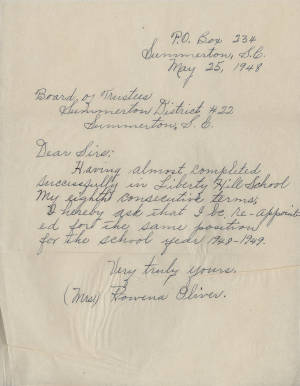 P.O. Box 234
Summerton, S.C.
May 25, 1948
Board of Trustees
Summerton District #22
Summerton, S.C.
Dear Sirs:
Having almost completed
successfully in Liberty Hill School
My eighth consecutive terms,
I hereby ask that I be Re-Appoint
ed for the same position
for the school year 1948-1949.
Very truly yours,
(Mrs) Rowena Oliver.